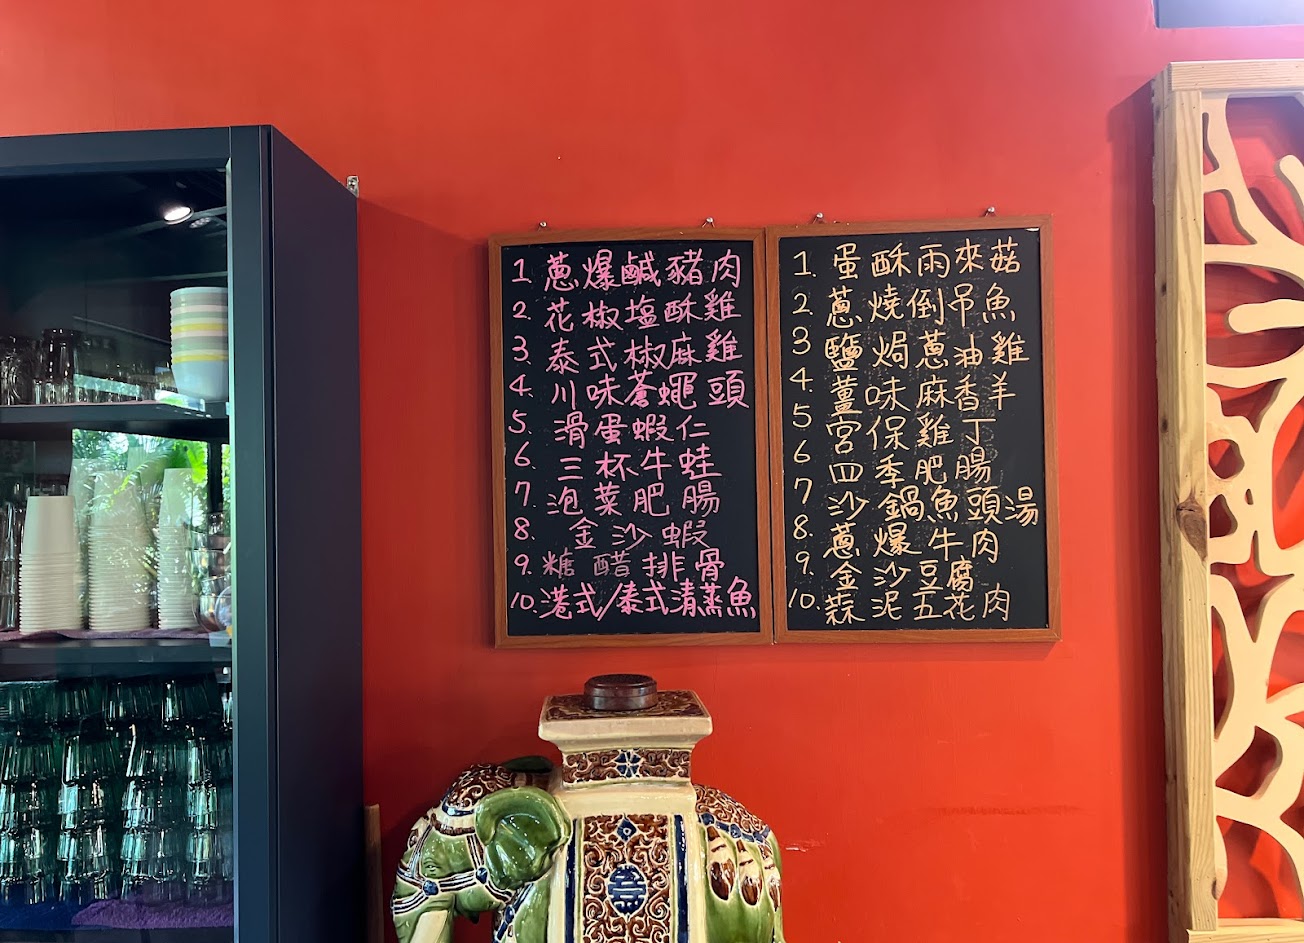 1. 蔥爆鹹豬肉
2. 花椒塩酥雞
3. 泰式椒麻雞
4. 川味蒼蠅頭
5. 滑蛋蝦仁
6. 三杯牛蛙
7. 泡菜肥腸
8. 金沙蝦
9. 糖醋排骨
10. 港式/泰式清蒸魚
1. 蛋酥雨來菇
2. 蔥燒倒吊魚
3. 鹽焗蔥油雞
4. 薑味麻香羊
5. 宮保雞丁
6. 四季肥腸
7. 沙鍋魚頭湯
8. 蔥爆牛肉
9. 金沙豆腐
10. 蒜泥五花肉